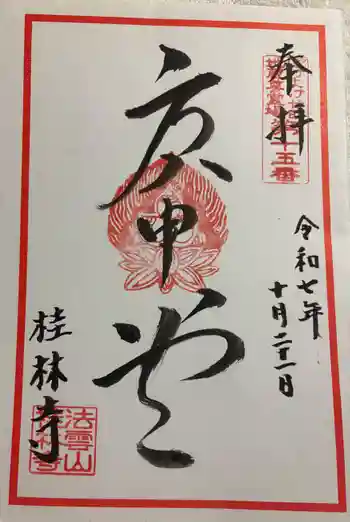 奉拝
十五番
令和七年
十月二十一日
庚申堂
桂林寺
法雲山
桂林寺